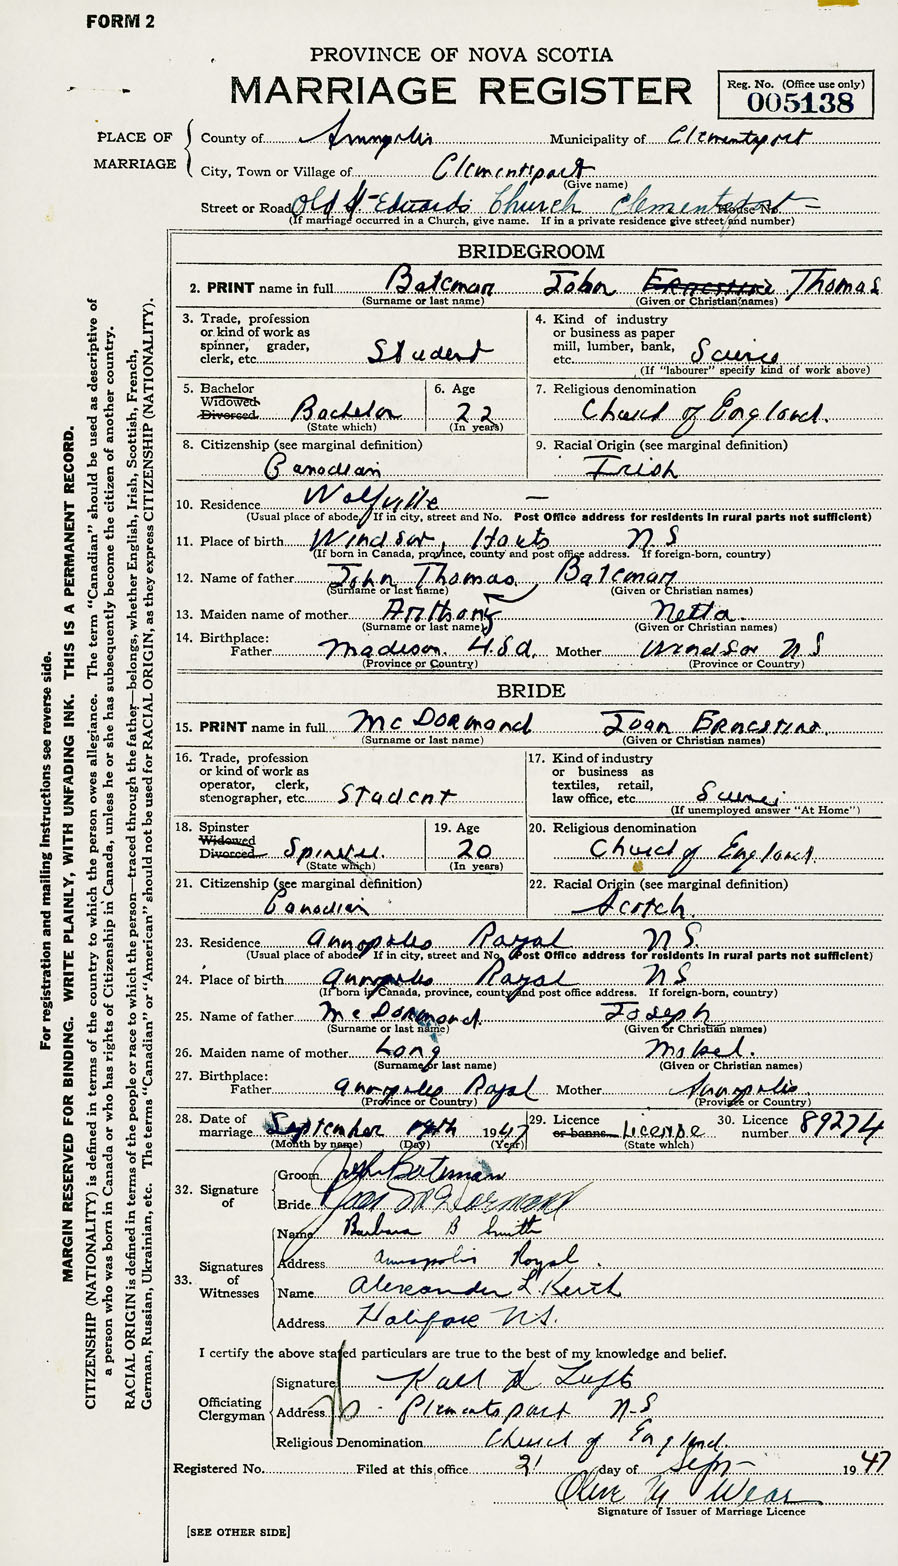 FORM 2
PROVINCE OF NOVA SCOTIA
MARRIAGE REGISTER
Reg. No. (Office use only)
005138
PLACE OF MARRIAGE
County of Annapolis Municipality of Clementsport
City, Town or Village of Clementsport
(Give name)
Street or Road Old St Edwards Church Clementsport House No.
(If marriage occurred in a Church, give name. If in a private residence give street and number)
BRIDEGROOM
2. PRINT name in full Bateman John Ernestine Thomas
(Surname or last name) (Given or Christian names)
3. Trade, profession or kind of work as spinner, grader, clerk, etc. Student
4. Kind of industry or business as paper mill, lumber, bank, etc.
(If "labourer" specify kind of work above)
5. Bachelor Widowed Divorced Bachelor
(State which)
6. Age 22
(In years)
7. Religious denomination Church of England
8. Citizenship (see marginal definition) Canadian
9. Racial Origin (see marginal definition) Irish
10. Residence Wolfville —
(Usual place of abode. If in city, street and No. Post Office address for residents in rural parts not sufficient)
11. Place of birth Windsor, Hants N S
(If born in Canada, province, county and post office address. If foreign-born, country)
12. Name of father John Thomas Bateman
(Surname or last name) (Given or Christian names)
13. Maiden name of mother Anthony Netta.
(Surname or last name) (Given or Christian names)
14. Birthplace:
Father Madison U.S.A. Mother Windsor N S
(Province or Country) (Province or Country)
BRIDE
15. PRINT name in full McDormand Joan Ernestine
(Surname or last name) (Given or Christian names)
16. Trade, profession or kind of work as operator, clerk, stenographer, etc. Student
17. Kind of industry or business as textiles, retail, law office, etc.
(If unemployed answer "At Home")
18. Spinster Widowed Divorced Spinster
(State which)
19. Age 20
(In years)
20. Religious denomination Church of England.
21. Citizenship (see marginal definition) Canadian
22. Racial Origin (see marginal definition) Scotch
23. Residence Annapolis Royal N S.
(Usual place of abode. If in city, street and No. Post Office address for residents in rural parts not sufficient)
24. Place of birth Annapolis Royal N S
(If born in Canada, province, county and post office address. If foreign-born, country)
25. Name of father McDormand Joseph
(Surname or last name) (Given or Christian names)
26. Maiden name of mother Long Mabel.
(Surname or last name) (Given or Christian names)
27. Birthplace:
Father Annapolis Royal Mother Annapolis
(Province or Country) (Province or Country)
28. Date of marriage September 1947
(Month by name) (Day) (Year)
29. Licence or banns License
(State which)
30. Licence number 89274
32. Signature of
Groom John Bateman
Bride Joan McDormand
33. Signatures of Witnesses
Name Barbara B Smith
Address Annapolis Royal.
Name Alexander L Keith
Address Halifax N.S.
I certify the above stated particulars are true to the best of my knowledge and belief.
Officiating Clergyman
Signature Karl H Tufts
Address Clementsport N-S
Religious Denomination Church of England
Registered No. Filed at this office 21 day of Sept 1947
Olive M Wear
Signature of Issuer of Marriage Licence
[SEE OTHER SIDE]
For registration and mailing instructions see reverse side.
MARGIN RESERVED FOR BINDING. WRITE PLAINLY, WITH UNFADING INK. THIS IS A PERMANENT RECORD.
CITIZENSHIP (NATIONALITY) is defined in terms of the country to which the person owes allegiance. The term "Canadian" should be used as descriptive of
a person who was born in Canada or who has rights of Citizenship in Canada, unless he or she has subsequently become the citizen of another country.
RACIAL ORIGIN is defined in terms of the people or race to which the person—traced through the father—belongs, whether English, Irish, Scottish, French,
German, Russian, Ukrainian, etc. The terms "Canadian" or "American" should not be used for RACIAL ORIGIN, as they express CITIZENSHIP (NATIONALITY).